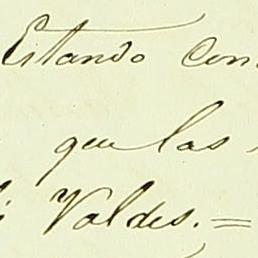 Estando con
que las
Valdes.=